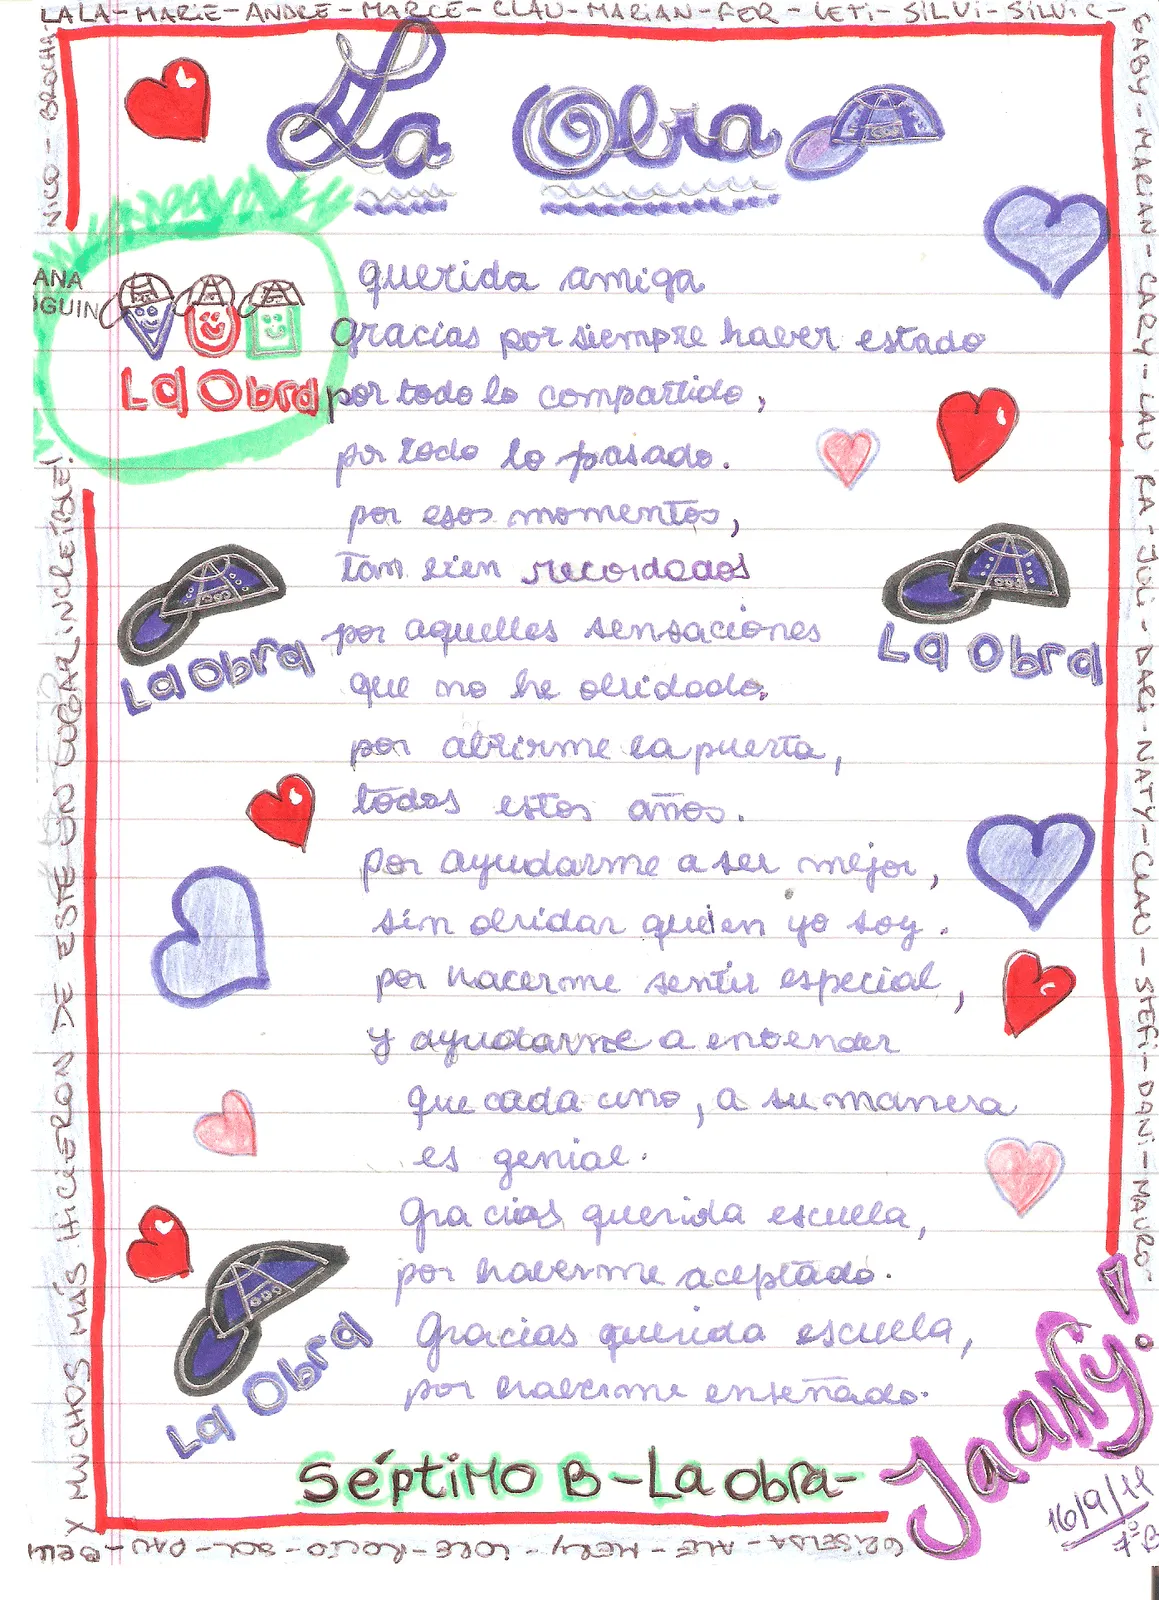 LALA-MARIE-ANDRE-MARCE-CLAU-MARIAN-FER-LETI-SILVI-SILVI C-
GABY-MARIAN-CARY-LAU RA-JULI-DARI-NATY-CLAU-STEFI-DANI-MAURO
La Obra
ANA
OGUIN
La Obra
querida amiga
gracias por siempre haber estado
por todo lo compartido,
por todo lo pasado.
por esos momentos,
tan bien recordados
por aquellas sensaciones
que no he olvidado.
La Obra
La Obra
por abrirme la puerta,
todos estos años.
por ayudarme a ser mejor,
sin olvidar quien yo soy.
por hacerme sentir especial,
y ayudarme a entender
que cada uno, a su manera
es genial.
Gracias querida escuela,
por haberme aceptado.
Gracias querida escuela,
por haberme enseñado.
La Obra
Séptimo B -La obra-
Jaany!
16/9/11
7ºB
GRISELDA-ALE-MERY-LORE-ROCIO-SOL-PAU-BELU
Y MUCHOS MÁS HICIERON DE ESTE UN LUGAR INCREÍBLE!
NICO-BROCHA